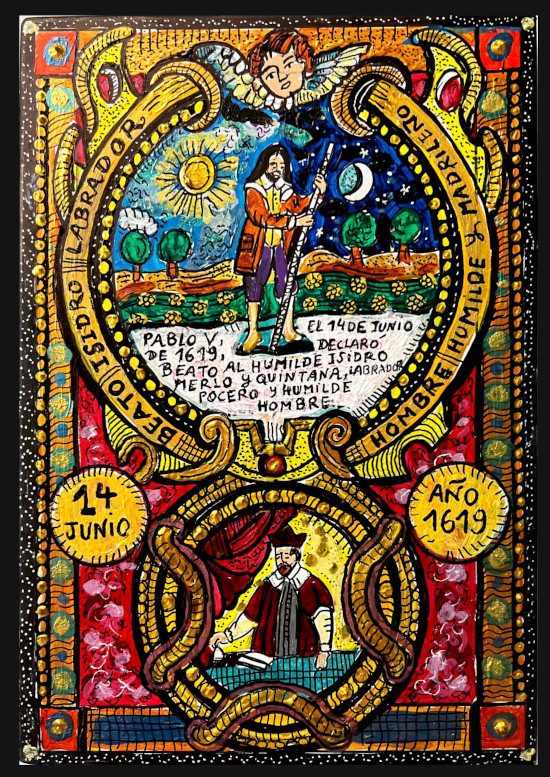 BEATO ISIDRO LABRADOR
HOMBRE HUMILDE Y MADRILEÑO
PABLO V, EL 14 DE JUNIO
DE 1619, DECLARO
BEATO AL HUMILDE ISIDRO
MERLO Y QUINTANA, LABRADOR
POCERO Y HUMILDE
HOMBRE.
14
JUNIO
AÑO
1619